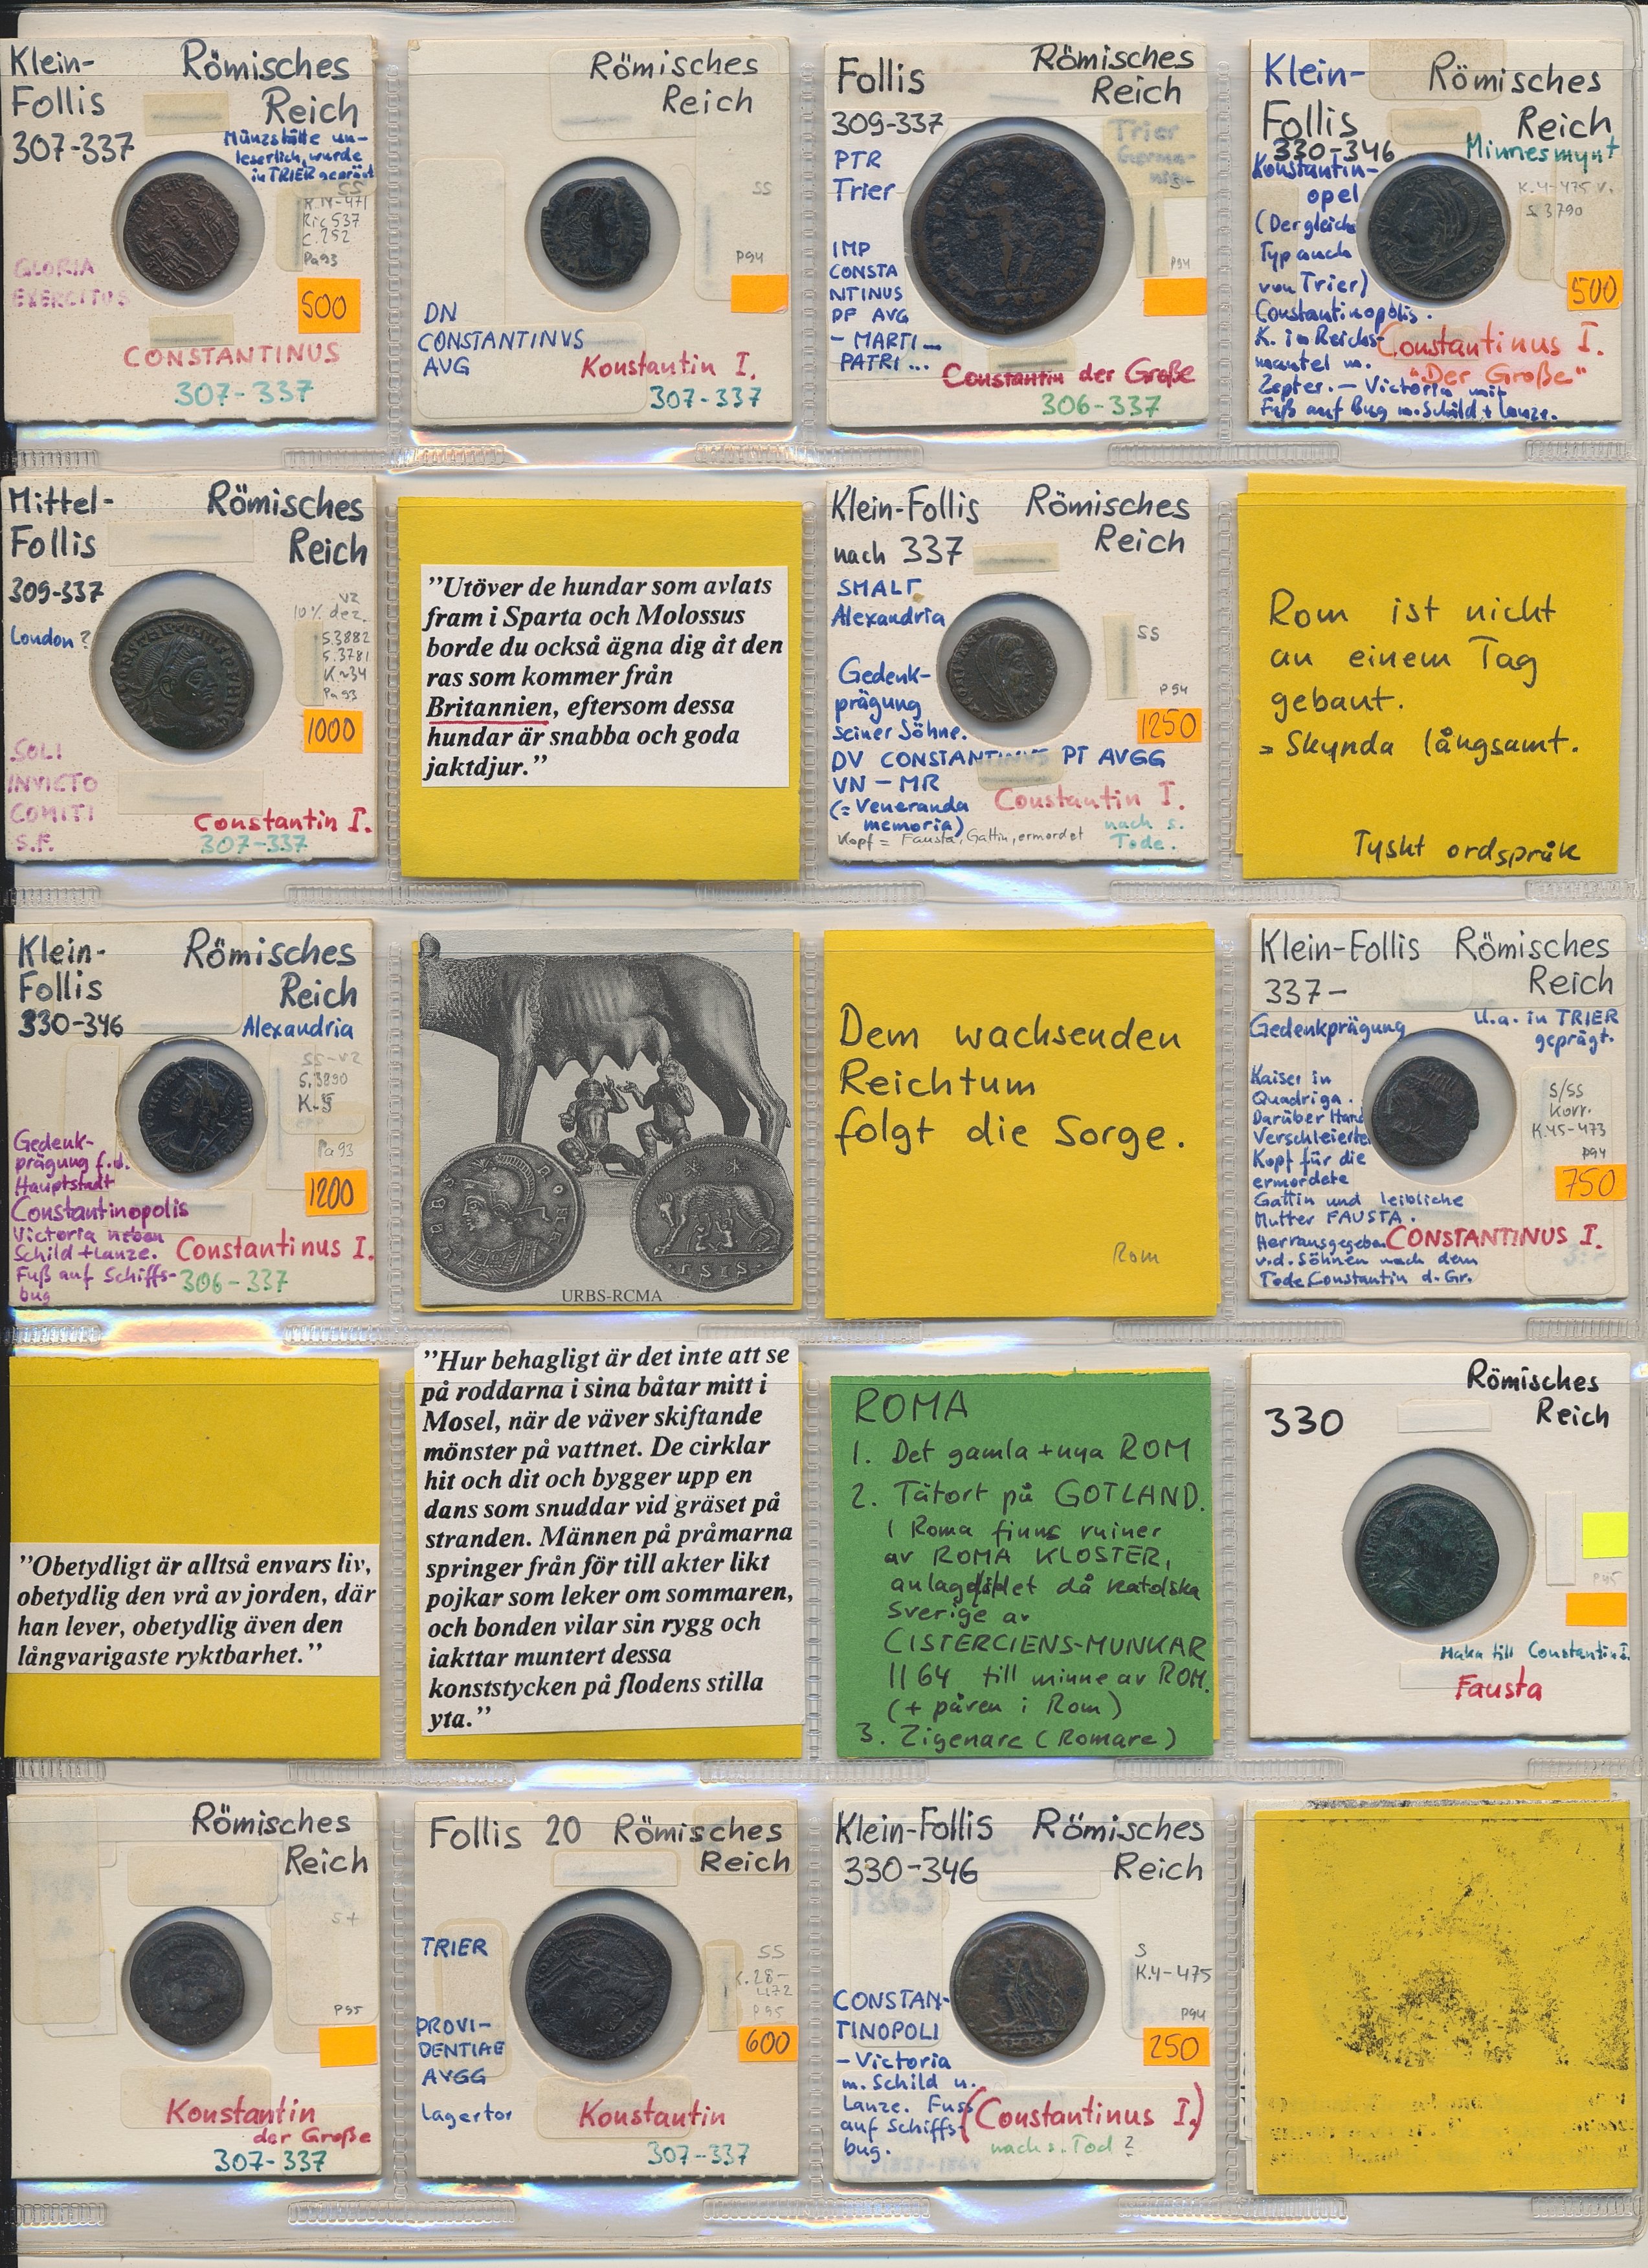 Klein-
Follis
307-337
Römisches
Reich
Münzstätte un-
leserlich, wurde
in TRIER geprägt
SS
Ric 537
C. 252
Pa93
GLORIA
EXERCITUS
500
CONSTANTINUS
307-337
Römisches
Reich
SS
P94
DN
CONSTANTINVS
AVG
Konstantin I.
307-337
Follis
309-337
Römisches
Reich
PTR
Trier
Trier
P94
IMP
CONSTA
NTINUS
PF AVG
- MARTI -
PATRI...
Constantin der Große
306-337
Klein-
Follis
330-346
Römisches
Reich
Minnesmynt
K.4-475 v.
S 3790
Konstantin-
opel
(Der gleiche
Typ auch
von Trier)
Constantinopolis.
K. in Reichs-
mantel m.
Zepter. - Victoria mit
Fuß auf Bug m. Schild + Lanze.
500
Constantinus I.
"Der Große"
Mittel-
Follis
309-337
Römisches
Reich
London?
vz
10% dez.
S.3882
S.3781
K~34
Pa 93
1000
SOLI
INVICTO
COMITI
S.F.
Constantin I.
307-337
"Utöver de hundar som avlats
fram i Sparta och Molossus
borde du också ägna dig åt den
ras som kommer från
Britannien, eftersom dessa
hundar är snabba och goda
jaktdjur."
Klein-Follis
nach 337
Römisches
Reich
SMALΓ
Alexandria
SS
P94
Gedenk-
prägung
seiner Söhne.
1250
DV CONSTANTINVS PT AVGG
VN - MR
(= Veneranda
memoria)
Constantin I.
nach s.
Tode.
Kopf = Fausta, Gattin, ermordet
Rom ist nicht
an einem Tag
gebaut.
= Skynda långsamt.
Tyskt ordspråk
Klein-
Follis
330-346
Römisches
Reich
Alexandria
SS-vz
S.3890
Pa93
Gedenk-
prägung f.d.
Hauptstadt
Constantinopolis
Victoria neben
Schild + Lanze.
Fuß auf Schiffs-
bug
1200
Constantinus I.
306-337
URBS-RCMA
Dem wachsenden
Reichtum
folgt die Sorge.
Rom
Klein-Follis
337-
Römisches
Reich
Gedenkprägung
U.a. in TRIER
geprägt.
Kaiser in
Quadriga.
Darüber Hand
Verschleierter
Kopf für die
ermordete
Gattin und leibliche
Mutter FAUSTA.
Herrausgegeben
v.d. Söhnen nach dem
Tode Constantin d. Gr.
S/SS
Korr.
K.45-473
P94
750
CONSTANTINUS I.
"Obetydligt är alltså envars liv,
obetydlig den vrå av jorden, där
han lever, obetydlig även den
långvarigaste ryktbarhet."
"Hur behagligt är det inte att se
på roddarna i sina båtar mitt i
Mosel, när de väver skiftande
mönster på vattnet. De cirklar
hit och dit och bygger upp en
dans som snuddar vid gräset på
stranden. Männen på pråmarna
springer från för till akter likt
pojkar som leker om sommaren,
och bonden vilar sin rygg och
iakttar muntert dessa
konststycken på flodens stilla
yta."
ROMA
1. Det gamla + nya ROM
2. Tätort på GOTLAND.
I Roma finns ruiner
av ROMA KLOSTER,
anlagd det då katolska
Sverige av
CISTERCIENS-MUNKAR
1164 till minne av ROM.
(+ påven i Rom)
3. Zigenare (Romare)
330
Römisches
Reich
P45
Maka till Constantin I.
Fausta
Römisches
Reich
S+
P95
Konstantin
der Große
307-337
Follis 20
Römisches
Reich
TRIER
SS
K.28-
472
P95
PROVI-
DENTIAE
AVGG
600
Lagertor
Konstantin
307-337
Klein-Follis
330-346
Römisches
Reich
1863
S
K.4-475
P94
CONSTAN-
TINOPOLI
- Victoria
m. Schild u.
Lanze. Fuss
auf Schiffs-
bug.
250
(Constantinus I.)
nach s. Tod?